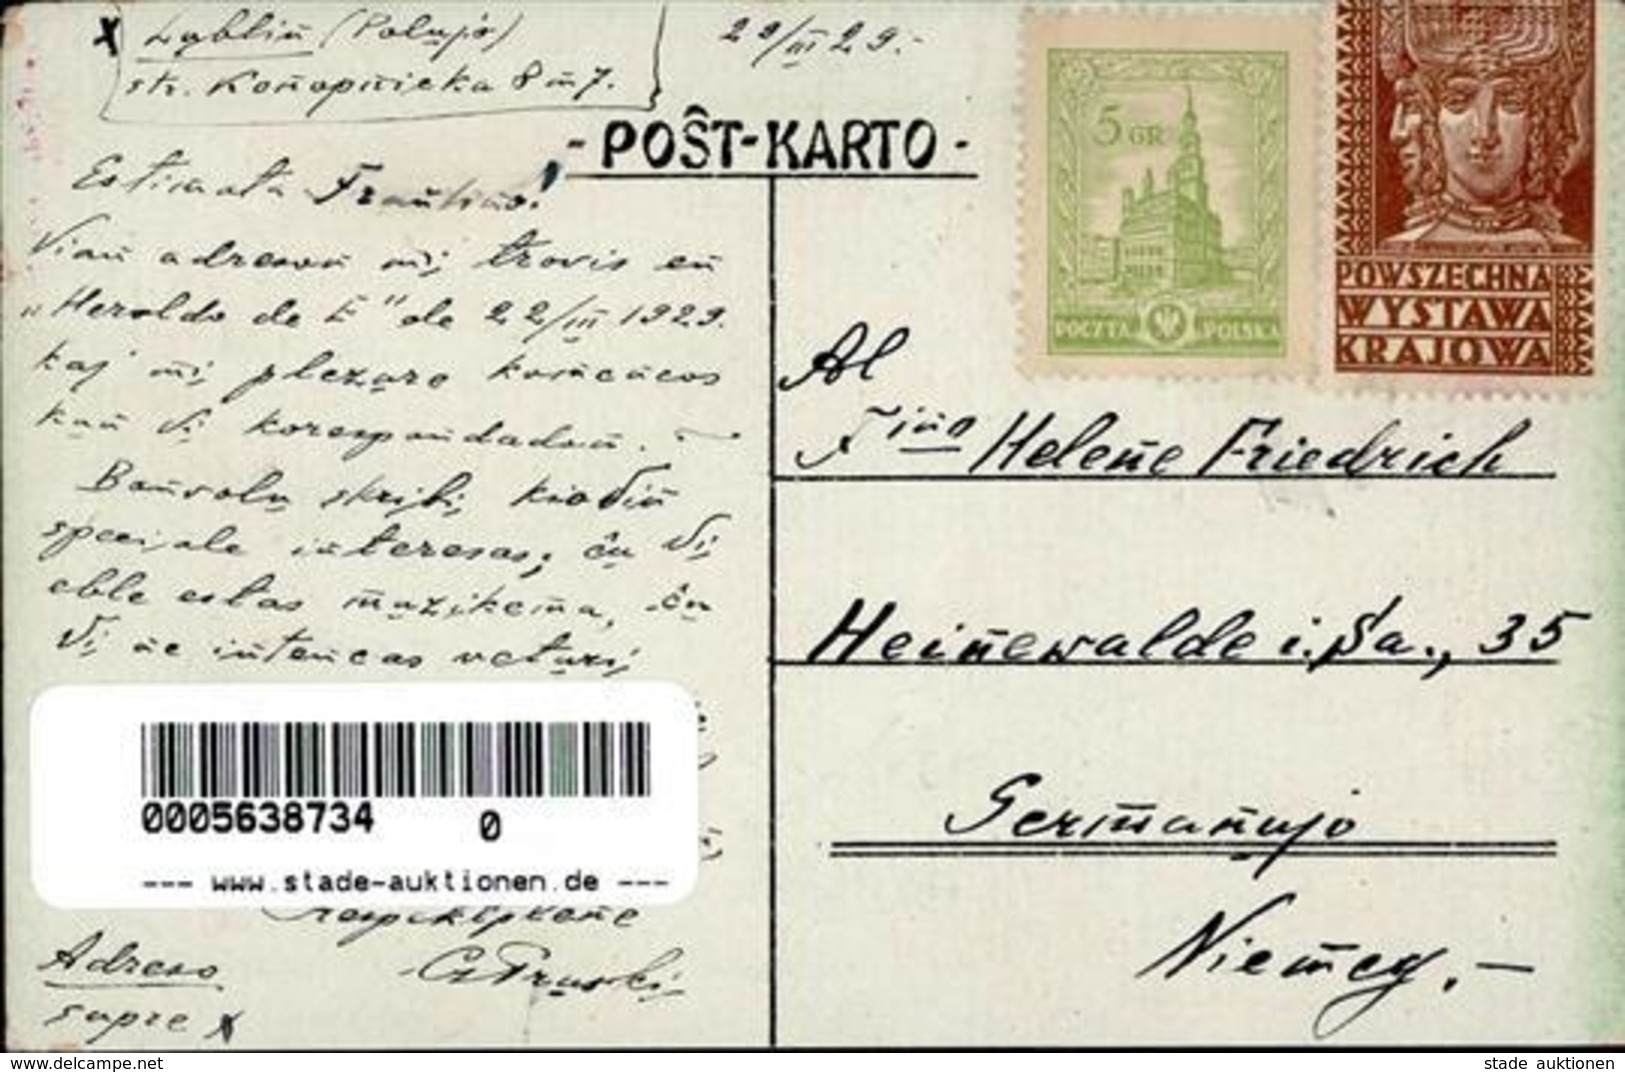 x Lublin (Polujo)
str. Konopnicka 8 m 7.
29/III 29.-
-POŜT-KARTO-
5 GR
POCZTA POLSKA
POWSZECHNA
WYSTAWA
KRAJOWA
Estimata Fraŭlino!
Vian adreson mi trovis en
„Heroldo de E" de 22/III 1929.
kaj mi plezure komencos
kun Vi korespondadon.
Bonvolu skribi, kio Vin
speciale interesas; ĉu Vi
eble estas muzikema, ĉu
Vi ne intencas veturi
respektplene
Adreso
supre x
Al
F-ino Helene Friedrich
Heinewalde i. Sa., 35
Germanujo
Niemcy.-
0005638734 0
--- www.stade-auktionen.de ---
www.delcampe.net
stade auktionen